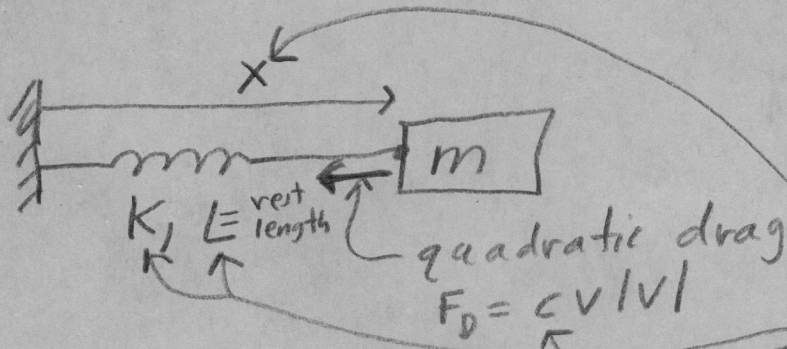 x
m
K, L ≡ rest length
quadratic drag
F_D = c v |v|